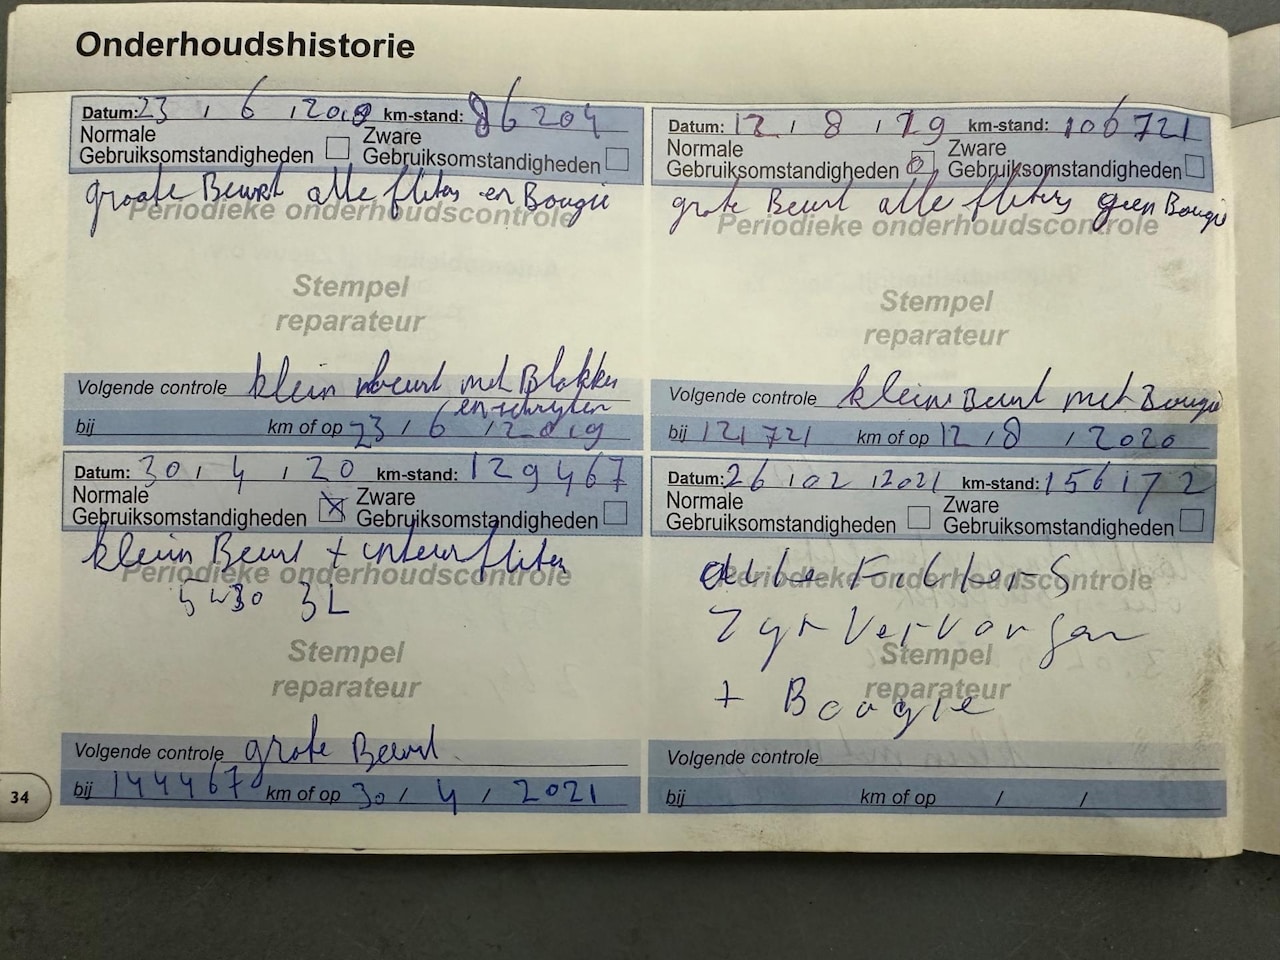 Onderhoudshistorie
Datum: 23 / 6 / 2018 km-stand: 86204
Normale Gebruiksomstandigheden Zware Gebruiksomstandigheden
groote Beurt alle filters en Bougie
Periodieke onderhoudscontrole
Stempel
reparateur
Volgende controle klein beurt met Blokken
en schrijven
bij km of op 23 / 6 / 2019
Datum: 12 / 8 / 19 km-stand: 106721
Normale Gebruiksomstandigheden Zware Gebruiksomstandigheden
grote Beurt alle filters geen Bougie
Periodieke onderhoudscontrole
Stempel
reparateur
Volgende controle klein Beurt met Bougie
bij 121721 km of op 12 / 8 / 2020
Datum: 30 / 4 / 20 km-stand: 129467
Normale Gebruiksomstandigheden Zware Gebruiksomstandigheden
klein Beurt + interieurfilter
Periodieke onderhoudscontrole
5w30 3L
Stempel
reparateur
Volgende controle grote Beurt
bij 144467 km of op 30 / 4 / 2021
Datum: 26 / 02 / 2021 km-stand: 156172
Normale Gebruiksomstandigheden Zware Gebruiksomstandigheden
Filters
Periodieke onderhoudscontrole
Zyn Vervangen
Stempel
+ Bougie
reparateur
Volgende controle
bij km of op / /
34